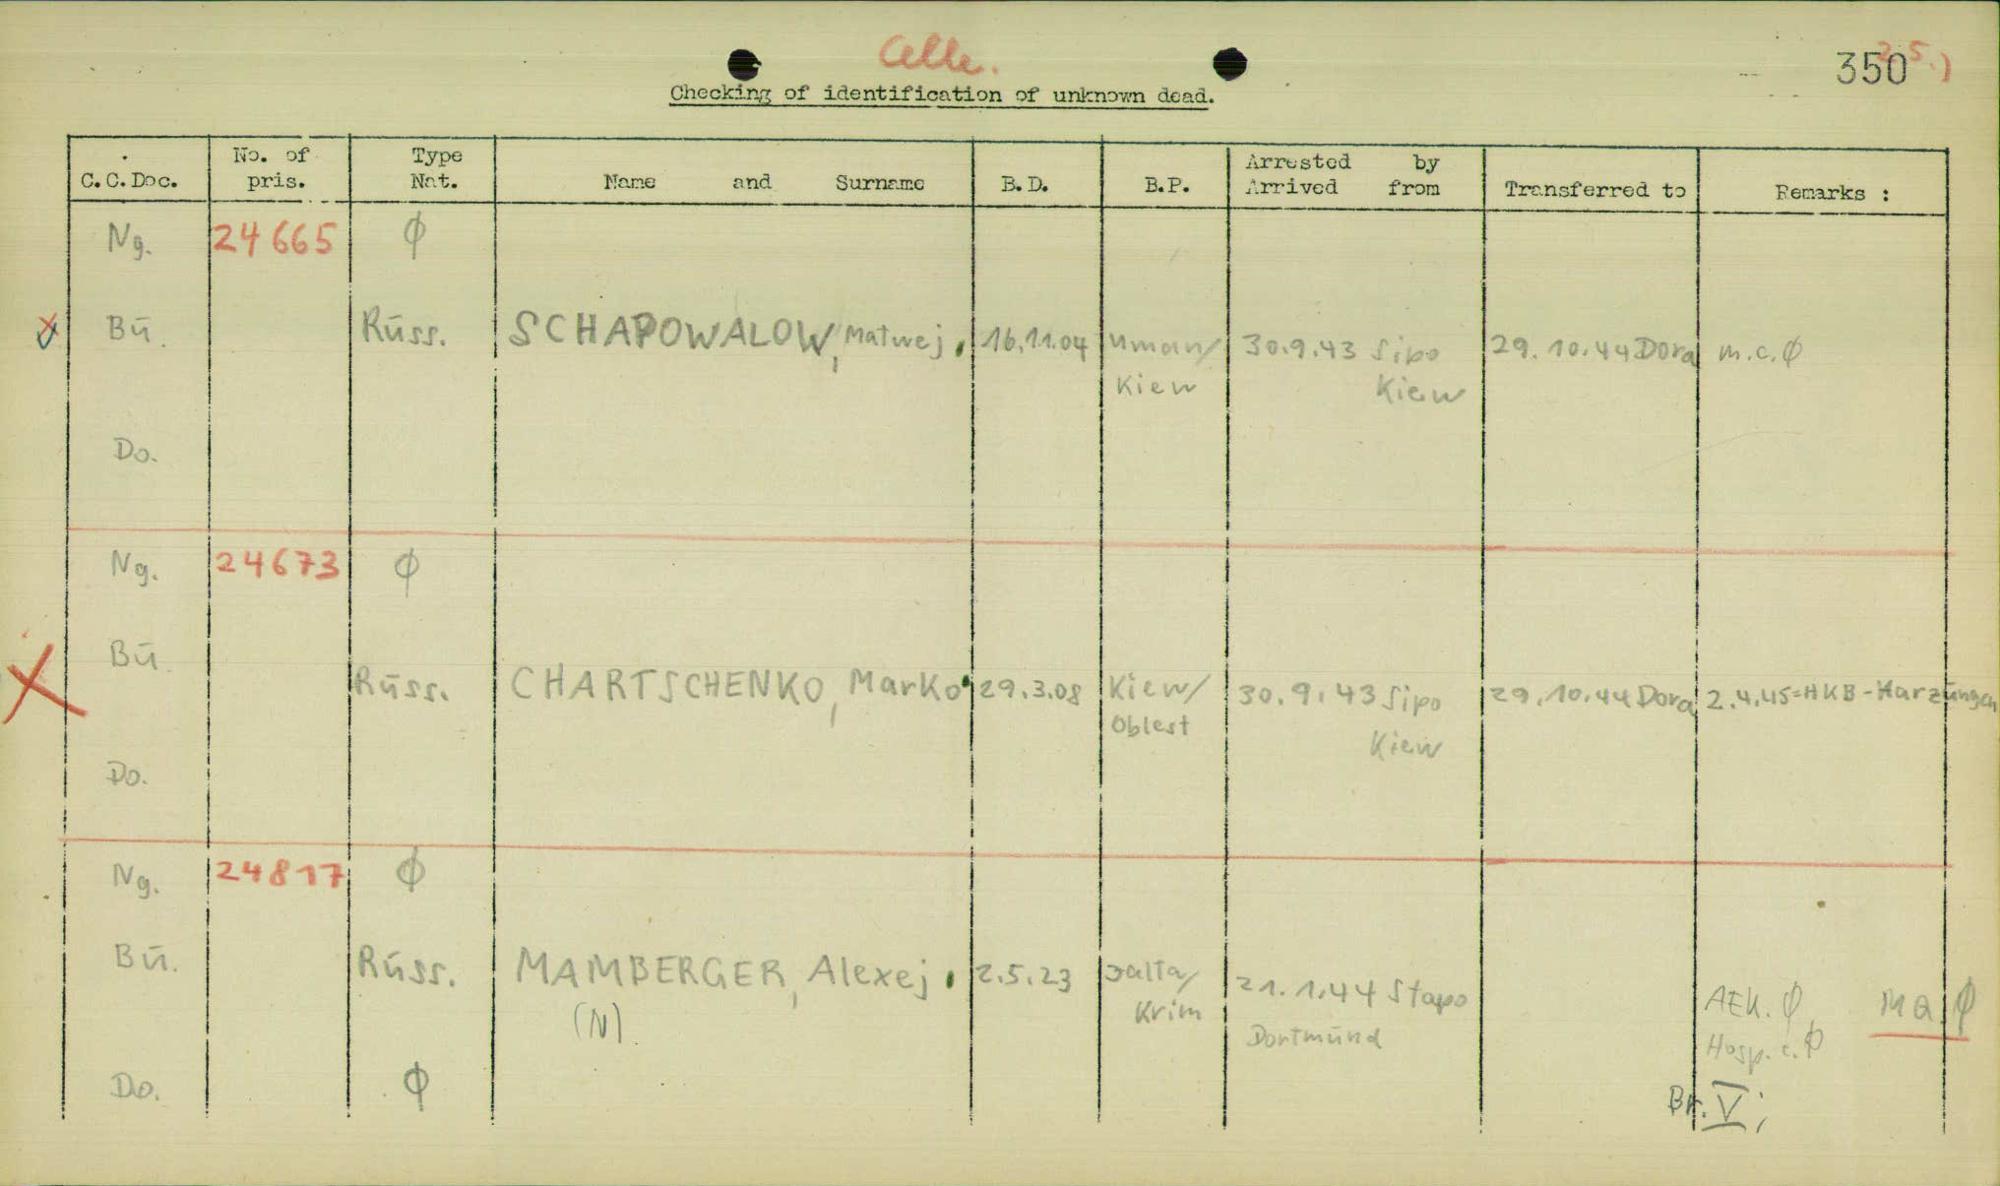 Celle.
350 25.)
Checking of identification of unknown dead.
C.C.Doc. No. of pris. Type Nat. Name and Surname B.D. B.P. Arrested by Arrived from Transferred to Remarks :
Ng. 24665 ϕ
Bü. Russ. SCHAPOWALOW, Matwej, 16.11.04 Uman/ 30.9.43 Sipo 29.10.44 Dora m.c.ϕ
Kiew Kiew
Do.
Ng. 24673 ϕ
Bü.
Russ. CHARTSCHENKO, Marko 29.3.08 Kiew/ 30.9.43 Sipo 29.10.44 Dora 2.4.45=HKB-Harzungen
Oblest Kiew
Do.
Ng. 24817 ϕ
Bü. Russ. MAMBERGER, Alexej, 2.5.23 Jalta/ 21.1.44 Stapo
(N) Krim Dortmund
AEK. ϕ Ma ϕ
Hosp. c. ϕ
Do. ϕ
Br. V;